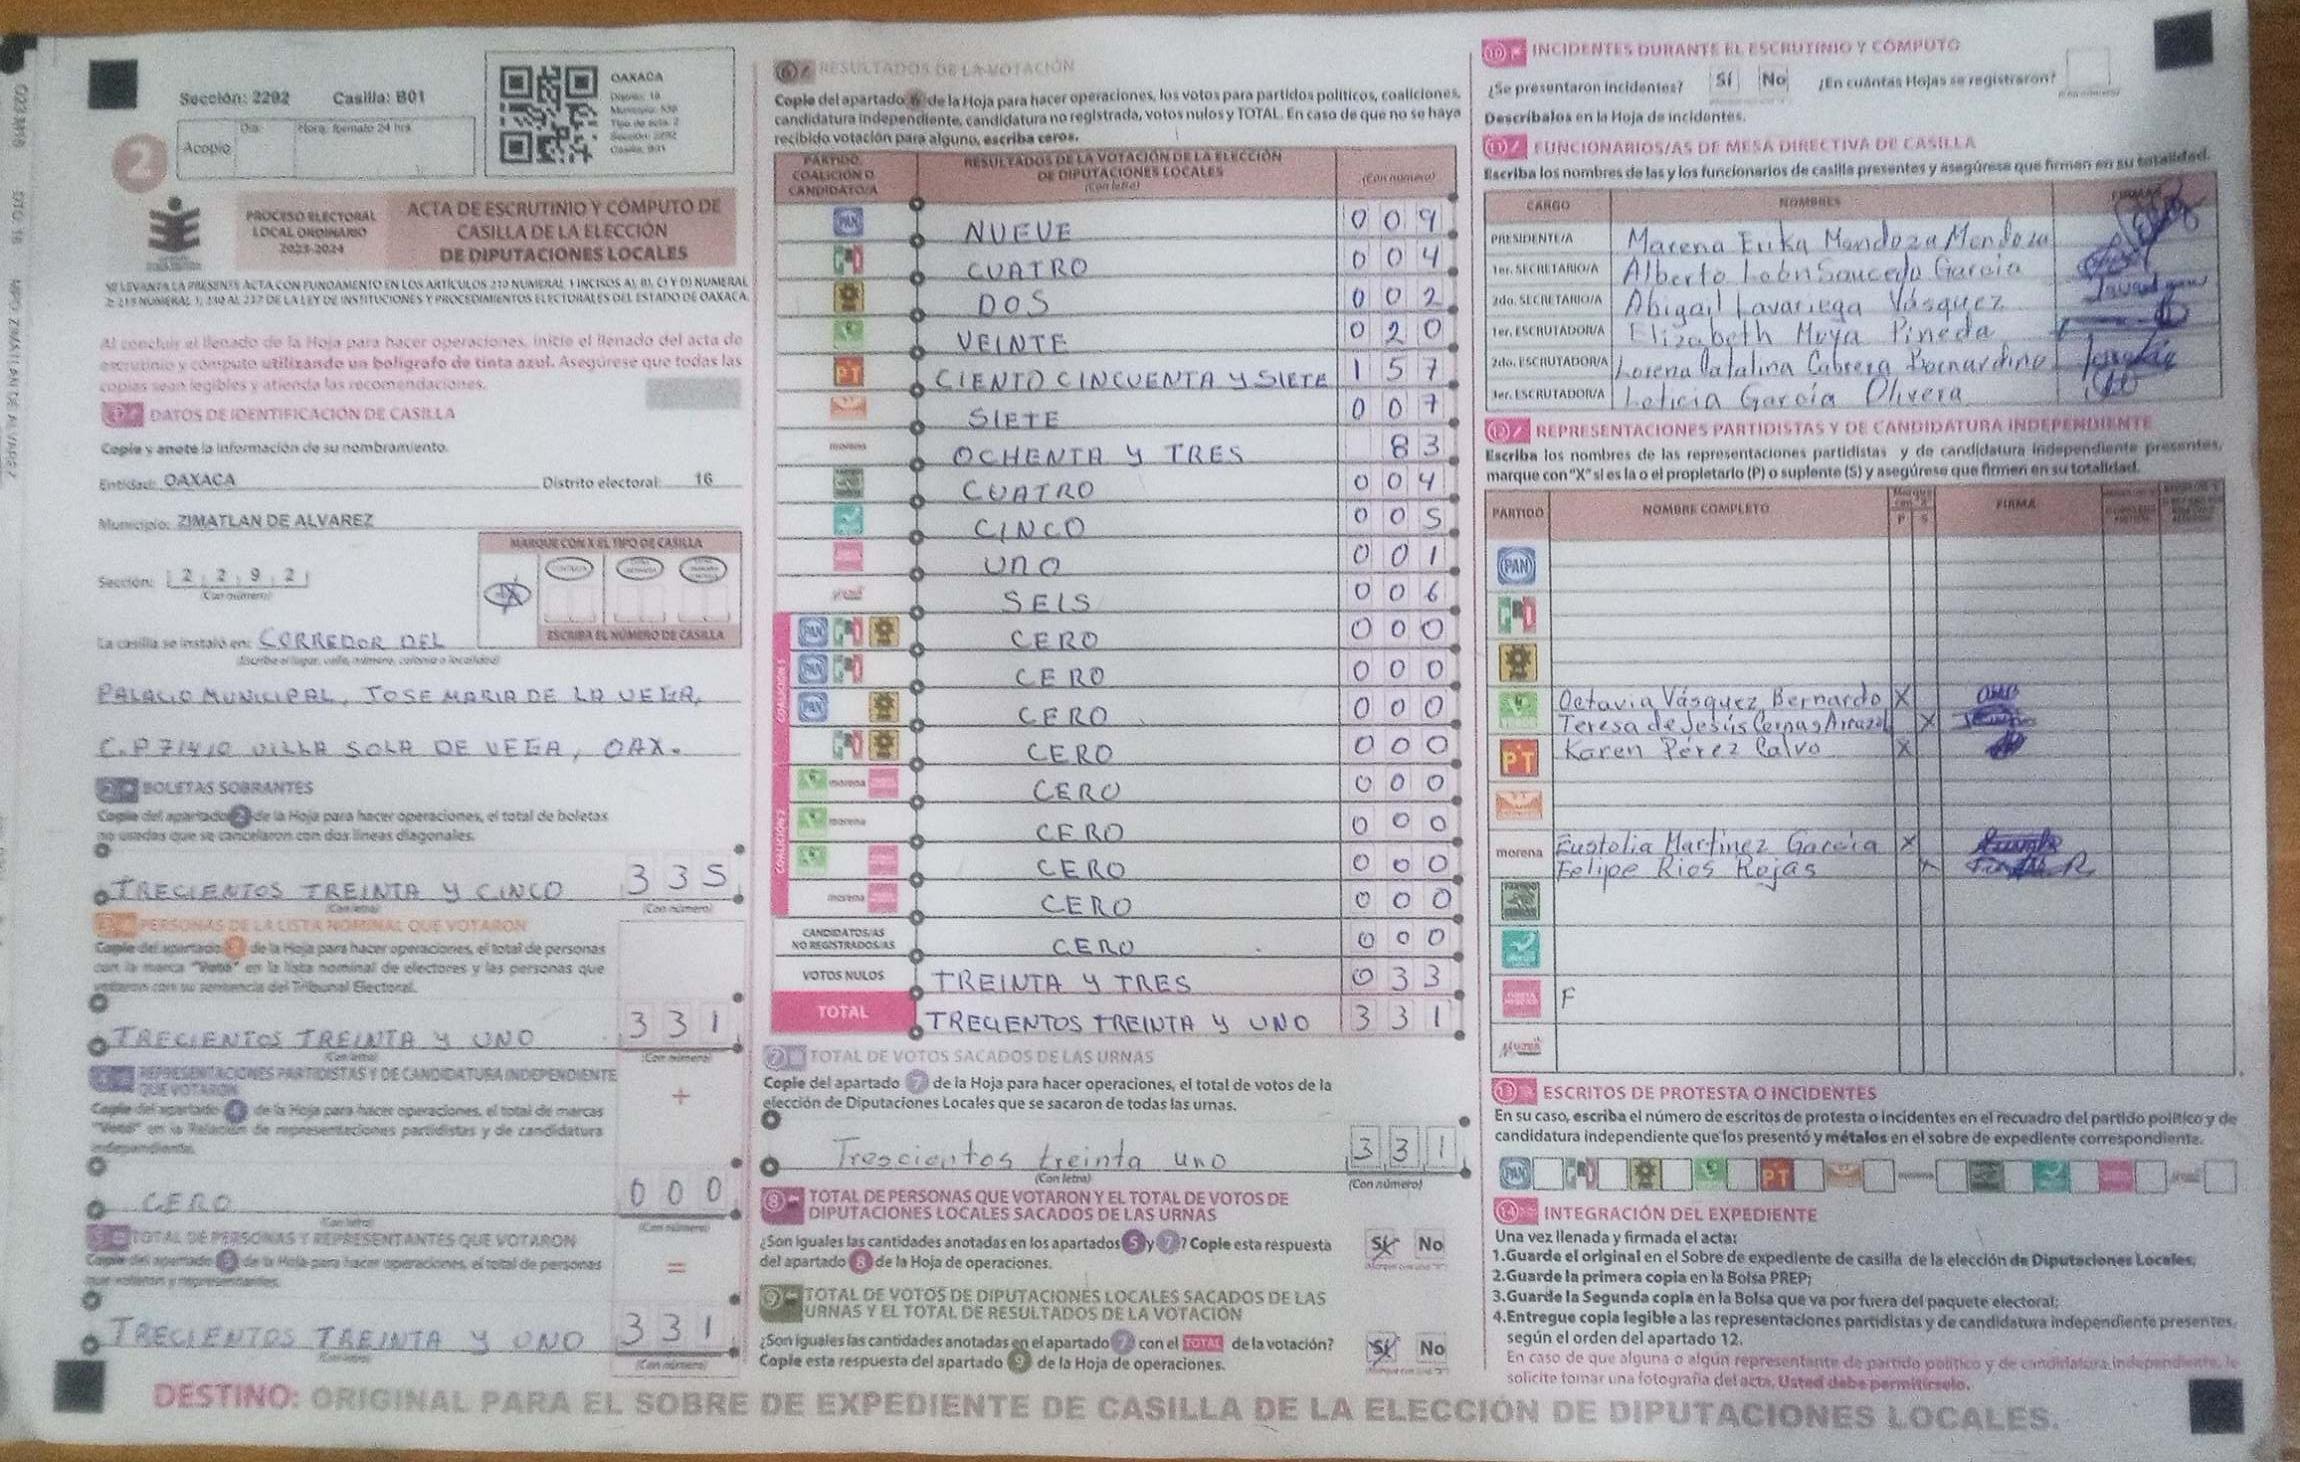 Sección: 2292 Casilla: B01
OAXACA
Día: Hora: formato 24 hrs
Acopio
2
PROCESO ELECTORAL
LOCAL ORDINARIO
2023-2024
ACTA DE ESCRUTINIO Y CÓMPUTO DE
CASILLA DE LA ELECCIÓN
DE DIPUTACIONES LOCALES
SE LEVANTA LA PRESENTE ACTA CON FUNDAMENTO EN LOS ARTÍCULOS
DE LA LEY DE INSTITUCIONES Y PROCEDIMIENTOS ELECTORALES DEL ESTADO DE OAXACA.
Al concluir el llenado de la Hoja para hacer operaciones, inicie el llenado del acta de
escrutinio y cómputo utilizando un bolígrafo de tinta azul. Asegúrese que todas las
copias sean legibles y atienda las recomendaciones.
DATOS DE IDENTIFICACIÓN DE CASILLA
Copie y anote la información de su nombramiento.
Entidad: OAXACA Distrito electoral: 16
Municipio: ZIMATLAN DE ALVAREZ
MARQUE CON X EL TIPO DE CASILLA
Sección: 2 2 9 2
(Con número)
ESCRIBA EL NÚMERO DE CASILLA
La casilla se instaló en: CORREDOR DEL
(Escriba el lugar, calle, número, colonia o localidad)
PALACIO MUNICIPAL, JOSE MARIA DE LA VEGA,
C.P 71410 VILLA SOLA DE VEGA, OAX.
BOLETAS SOBRANTES
Copie del apartado 2 de la Hoja para hacer operaciones, el total de boletas
no usadas que se cancelaron con dos líneas diagonales.
TRECIENTOS TREINTA Y CINCO 335
(Con letra) (Con número)
PERSONAS DE LA LISTA NOMINAL QUE VOTARON
Copie del apartado 3 de la Hoja para hacer operaciones, el total de personas
con la marca "Votó" en la lista nominal de electores y las personas que
votaron con su sentencia del Tribunal Electoral.
TRECIENTOS TREINTA Y UNO 331
(Con letra) (Con número)
REPRESENTACIONES PARTIDISTAS Y DE CANDIDATURA INDEPENDIENTE
QUE VOTARON
Copie del apartado 4 de la Hoja para hacer operaciones, el total de marcas
"Votó" en la Relación de representaciones partidistas y de candidatura
independiente.
+
CERO 000
(Con letra) (Con número)
TOTAL DE PERSONAS Y REPRESENTANTES QUE VOTARON
Copie del apartado 5 de la Hoja para hacer operaciones, el total de personas
que votaron y representantes.
=
TRECIENTOS TREINTA Y UNO 331
(Con letra) (Con número)
6 RESULTADOS DE LA VOTACIÓN
Copie del apartado 6 de la Hoja para hacer operaciones, los votos para partidos políticos, coaliciones,
candidatura independiente, candidatura no registrada, votos nulos y TOTAL. En caso de que no se haya
recibido votación para alguno, escriba ceros.
PARTIDO, COALICIÓN O CANDIDATO/A
RESULTADOS DE LA VOTACIÓN DE LA ELECCIÓN DE DIPUTACIONES LOCALES
(Con letra) (Con número)
PAN NUEVE 009
PRI CUATRO 004
DOS 002
VEINTE 020
PT CIENTO CINCUENTA Y SIETE 157
SIETE 007
morena OCHENTA Y TRES 83
CUATRO 004
CINCO 005
UNO 001
SEIS 006
COALICIÓN 1
PAN PRI CERO 000
PAN PRI CERO 000
PAN CERO 000
PRI CERO 000
COALICIÓN 2
morena CERO 000
morena CERO 000
CERO 000
morena CERO 000
CANDIDATOS/AS
NO REGISTRADOS/AS CERO 000
VOTOS NULOS TREINTA Y TRES 033
TOTAL TRECIENTOS TREINTA Y UNO 331
7 TOTAL DE VOTOS SACADOS DE LAS URNAS
Copie del apartado 7 de la Hoja para hacer operaciones, el total de votos de la
elección de Diputaciones Locales que se sacaron de todas las urnas.
Trescientos treinta uno 331
(Con letra) (Con número)
8 TOTAL DE PERSONAS QUE VOTARON Y EL TOTAL DE VOTOS DE
DIPUTACIONES LOCALES SACADOS DE LAS URNAS
¿Son iguales las cantidades anotadas en los apartados 5 y 7? Copie esta respuesta
del apartado 8 de la Hoja de operaciones.
Sí No
9 TOTAL DE VOTOS DE DIPUTACIONES LOCALES SACADOS DE LAS
URNAS Y EL TOTAL DE RESULTADOS DE LA VOTACIÓN
¿Son iguales las cantidades anotadas en el apartado 7 con el TOTAL de la votación?
Copie esta respuesta del apartado 9 de la Hoja de operaciones.
Sí No
10 INCIDENTES DURANTE EL ESCRUTINIO Y CÓMPUTO
¿Se presentaron incidentes? Sí No ¿En cuántas Hojas se registraron?
Descríbalos en la Hoja de incidentes.
11 FUNCIONARIOS/AS DE MESA DIRECTIVA DE CASILLA
Escriba los nombres de las y los funcionarios de casilla presentes y asegúrese que firmen en su totalidad.
CARGO NOMBRES FIRMAS
PRESIDENTE/A Marena Erika Mendoza Mendoza
1er. SECRETARIO/A Alberto León Saucedo García
2do. SECRETARIO/A Abigail Lavariega Vásquez
1er. ESCRUTADOR/A Elizabeth Moya Pineda
2do. ESCRUTADOR/A Lorena Catalina Cabrera Bernardino
3er. ESCRUTADOR/A Leticia García Olivera
12 REPRESENTACIONES PARTIDISTAS Y DE CANDIDATURA INDEPENDIENTE
Escriba los nombres de las representaciones partidistas y de candidatura independiente presentes,
marque con "X" si es la o el propietario (P) o suplente (S) y asegúrese que firmen en su totalidad.
PARTIDO NOMBRE COMPLETO P S FIRMA
PAN
PRI
Octavia Vásquez Bernardo X
Teresa de Jesús X
PT Karen Pérez Calvo X
morena Eustolia Martínez García X
Felipe Rios Rojas X
F
13 ESCRITOS DE PROTESTA O INCIDENTES
En su caso, escriba el número de escritos de protesta o incidentes en el recuadro del partido político y de
candidatura independiente que los presentó y métalos en el sobre de expediente correspondiente.
PAN PRI PT morena
14 INTEGRACIÓN DEL EXPEDIENTE
Una vez llenada y firmada el acta:
1.Guarde el original en el Sobre de expediente de casilla de la elección de Diputaciones Locales;
2.Guarde la primera copia en la Bolsa PREP;
3.Guarde la Segunda copia en la Bolsa que va por fuera del paquete electoral;
4.Entregue copia legible a las representaciones partidistas y de candidatura independiente presentes,
según el orden del apartado 12.
En caso de que alguna o algún representante de partido político y de candidatura independiente, le
solicite tomar una fotografía del acta, Usted debe permitírselo.
DESTINO: ORIGINAL PARA EL SOBRE DE EXPEDIENTE DE CASILLA DE LA ELECCIÓN DE DIPUTACIONES LOCALES.